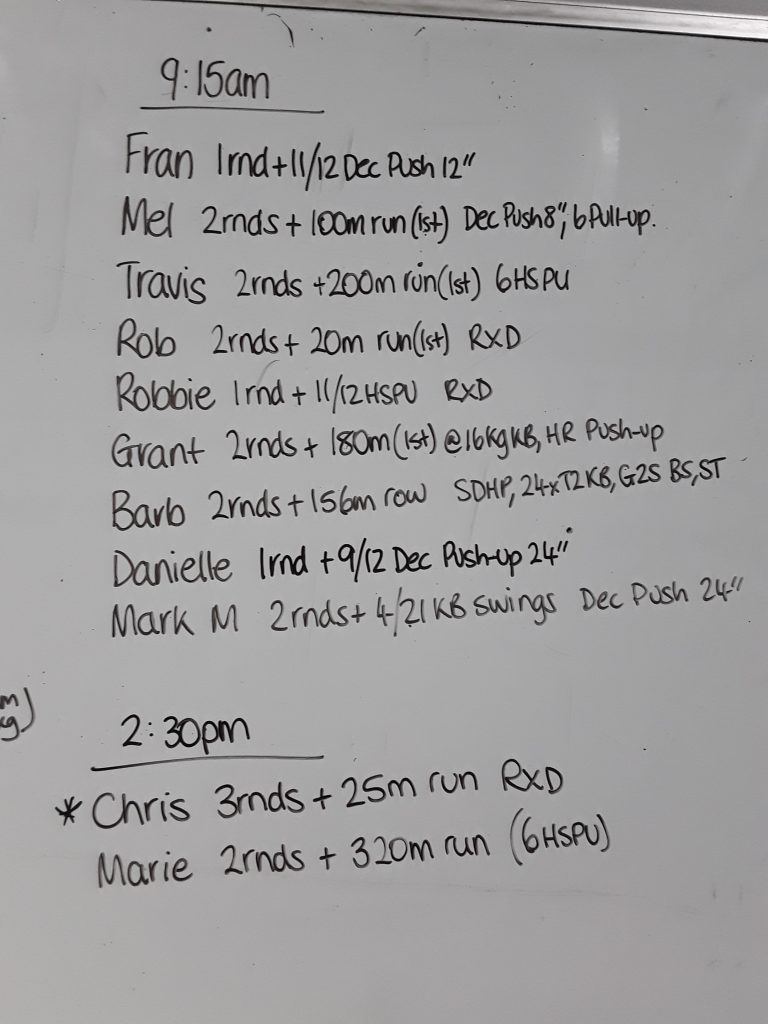 9:15am
Fran 1rnd+11/12 Dec Push 12"
Mel 2rnds + 100m run (1st) Dec Push 8", 6 Pull-up.
Travis 2rnds +200m run(1st) 6HSPU
Rob 2rnds + 20m run(1st) RXD
Robbie 1rnd + 11/12 HSPU RXD
Grant 2rnds + 180m (1st) @16kg KB, HR Push-up
Barb 2rnds + 156m row SDHP, 24xT2KB, G2S BS, ST
Danielle 1rnd + 9/12 Dec Push-up 24"
Mark M 2rnds + 4/21 KB swings Dec Push 24"
m)
kg)
2:30pm
* Chris 3rnds + 25m run RXD
Marie 2rnds + 320m run (6HSPU)